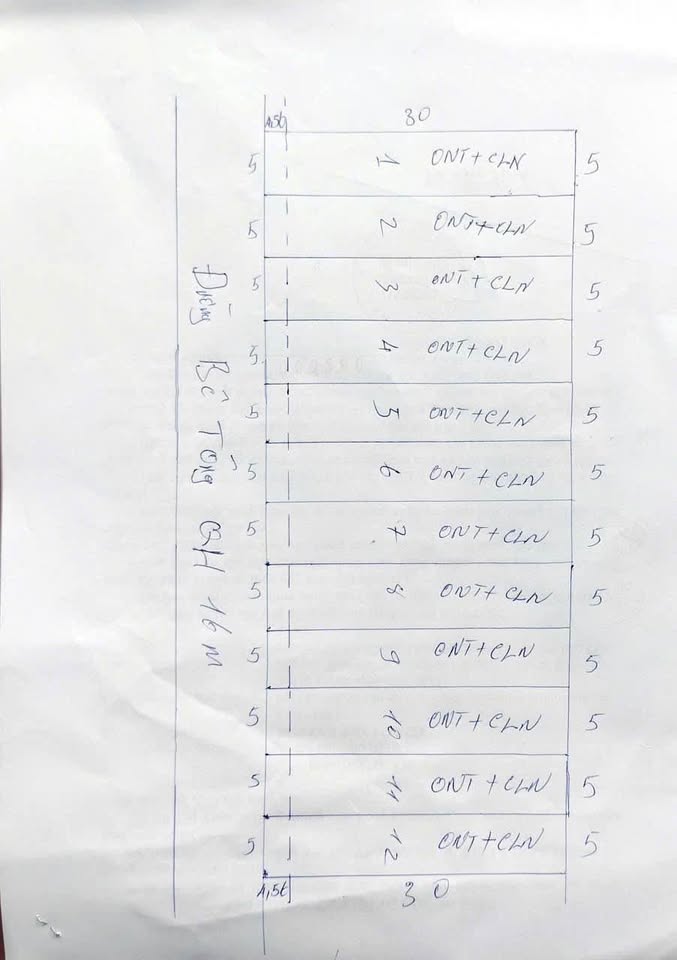 1,5t 30
5 1 ONT+CLN 5
5 2 ONT+CLN 5
5 3 ONT+CLN 5
5 4 ONT+CLN 5
5 5 ONT+CLN 5
5 6 ONT+CLN 5
5 7 ONT+CLN 5
5 8 ONT+CLN 5
5 9 ONT+CLN 5
5 10 ONT+CLN 5
5 11 ONT+CLN 5
5 12 ONT+CLN 5
1,5t 30
Đường Bê Tông QH 16 m